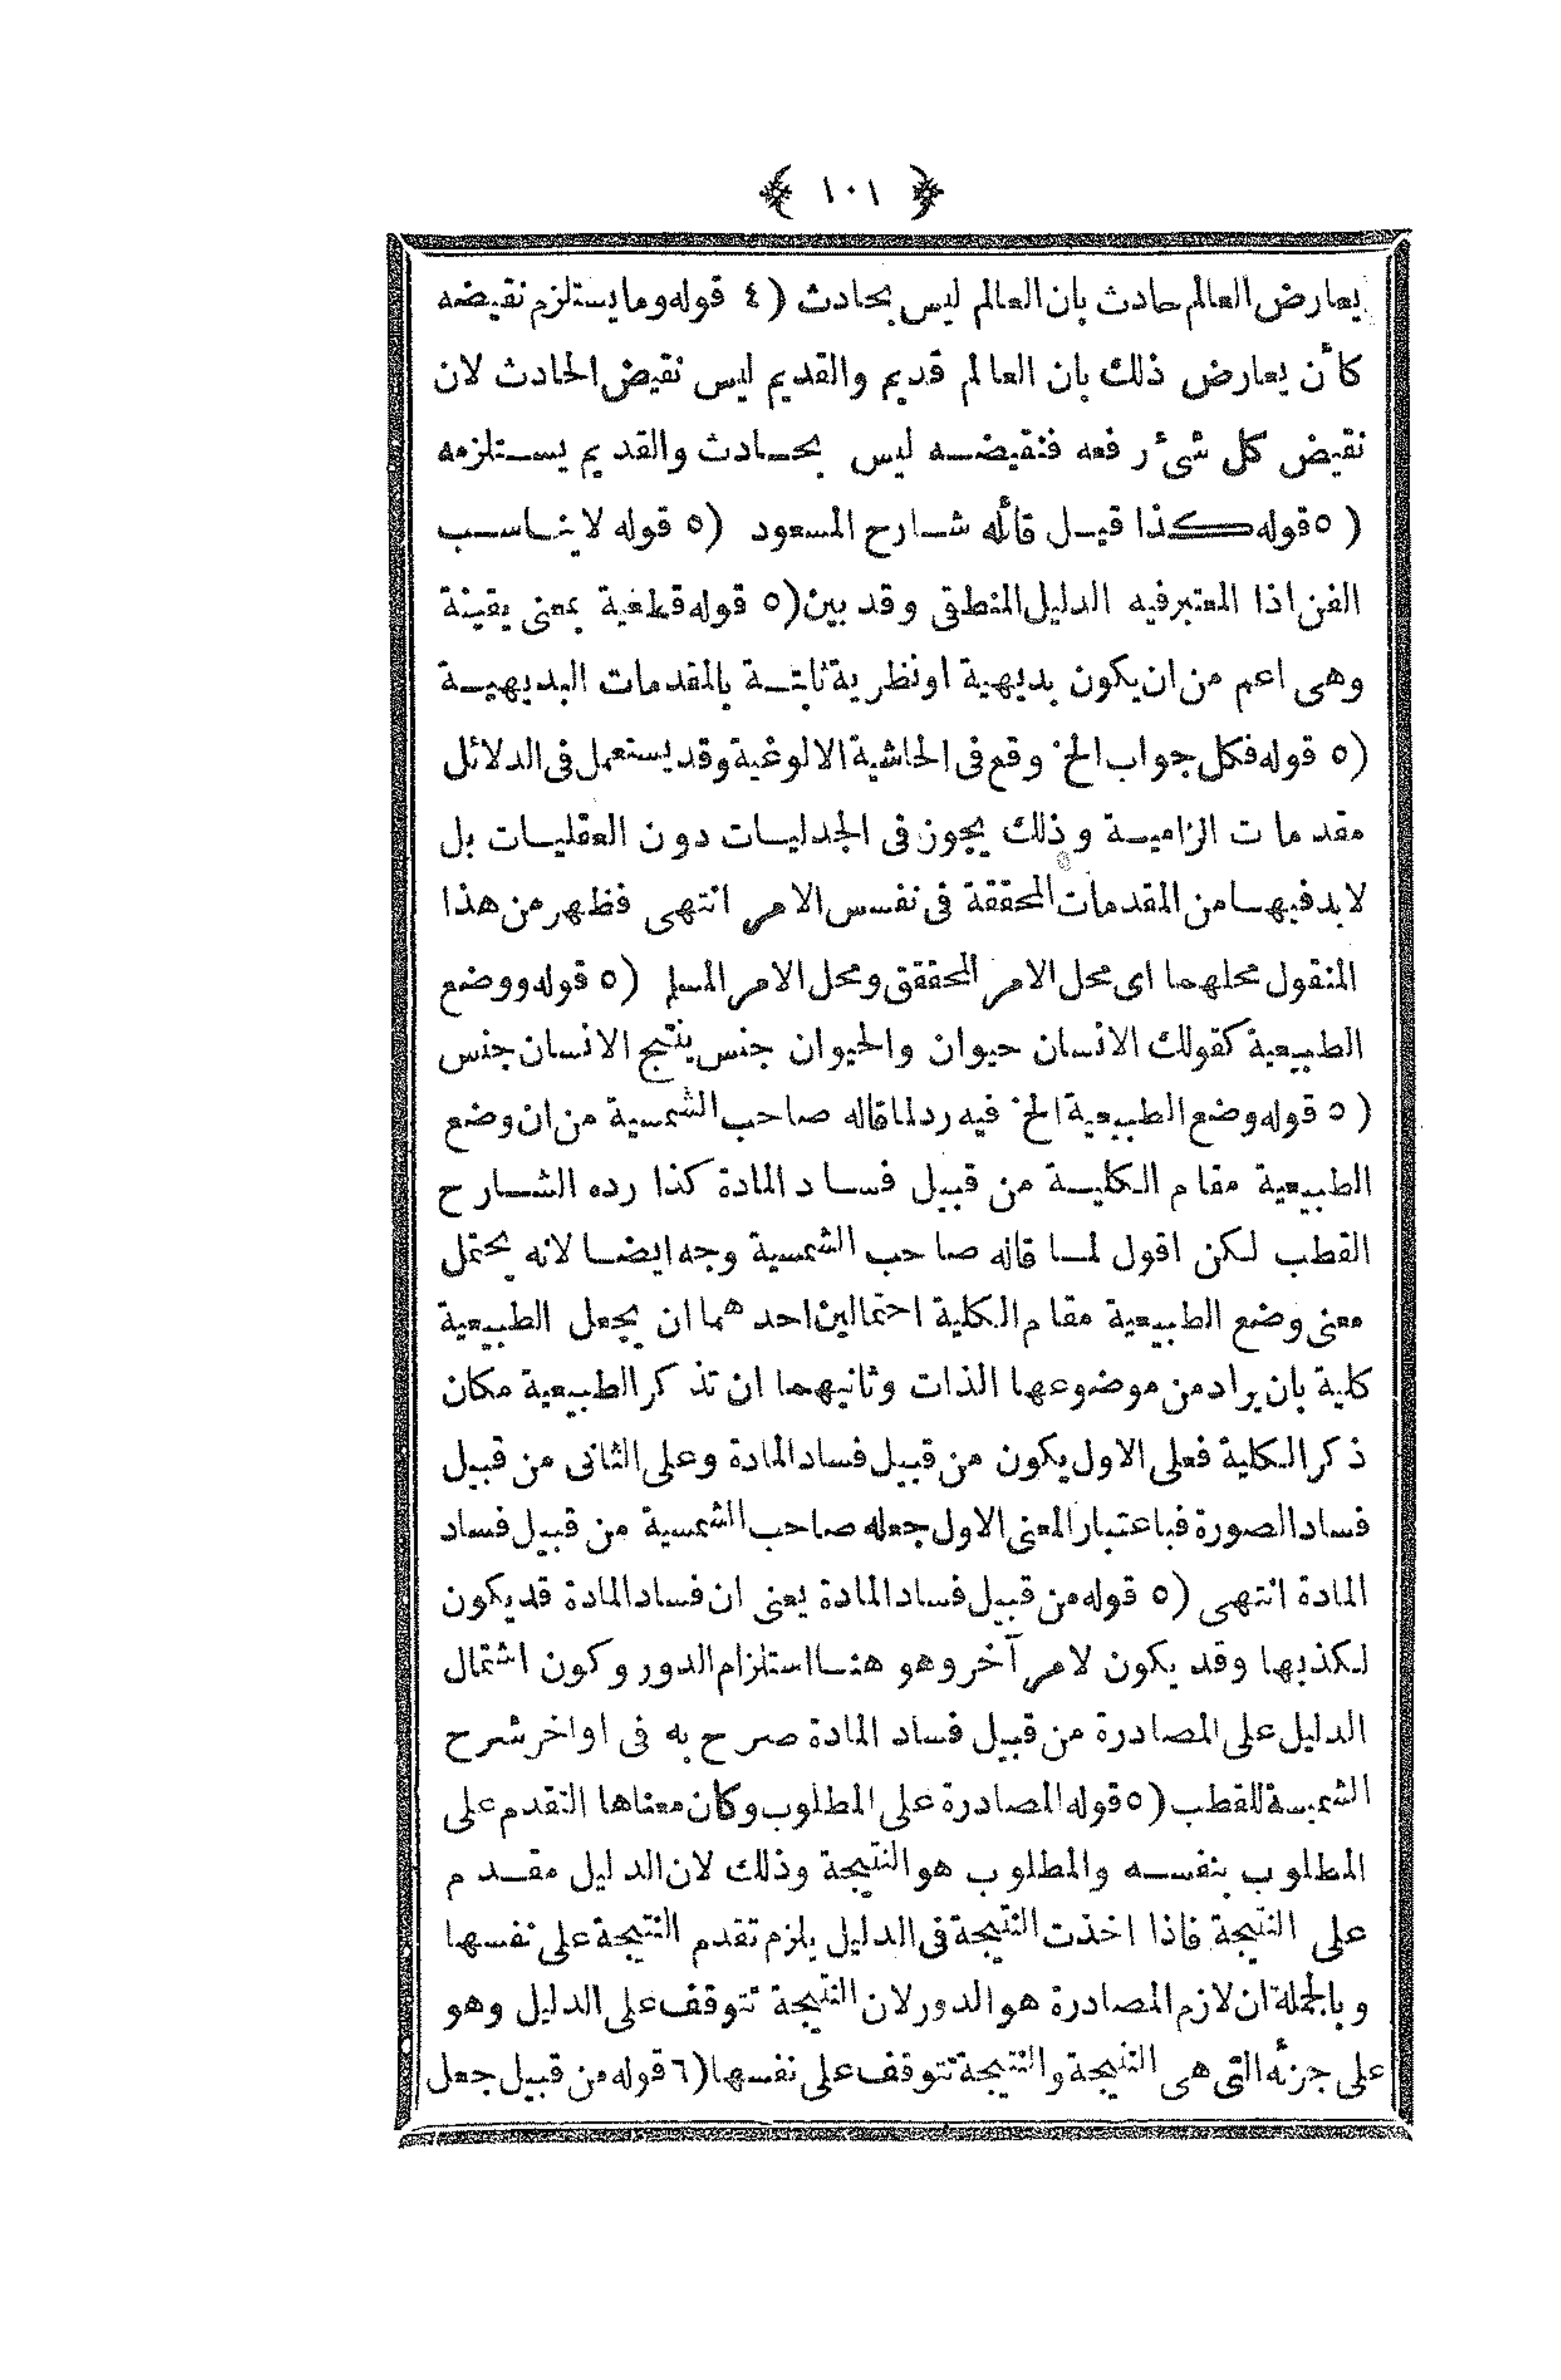 ﴿ ١٠١ ﴾
يعارض العالم حادث بان العالم ليس بحادث (٤ قوله وما يستلزم نقيضه
كأن يعارض ذلك بان العالم قديم والقديم ليس نقيض الحادث لان
نقيض كل شئ رفعه فنقيضه ليس بحادث والقديم يستلزمه
(٥ قوله كذا قيل قائله شارح المسعود (٥ قوله لا يناسب
الفن اذا المعتبر فيه الدليل المنطقى وقد بين (٥ قوله قطعية بمعنى يقينة
وهى اعم من ان يكون بديهية او نظرية ثابتة بالمقدمات البديهية
(٥ قوله فكل جواب الخ وقع فى الحاشية الالوغية وقد يستعمل فى الدلائل
مقدمات الزامية وذلك يجوز فى الجدليات دون العقليات بل
لابد فيها من المقدمات المحققة فى نفس الامر انتهى فظهر من هذا
المنقول محلهما اى محل الامر المحقق ومحل الامر المسلم (٥ قوله ووضع
الطبيعية كقولك الانسان حيوان والحيوان جنس ينتج الانسان جنس
(٥ قوله وضع الطبيعية الخ فيه رد لما قاله صاحب الشمسية من ان وضع
الطبيعية مقام الكلية من قبيل فساد المادة كذا رده الشارح
القطب لكن اقول لما قاله صاحب الشمسية وجه ايضا لانه يحتمل
معنى وضع الطبيعية مقام الكلية احتمالين احدهما ان يجعل الطبيعية
كلية بان يراد من موضوعها الذات وثانيهما ان تذكر الطبيعية مكان
ذكر الكلية فعلى الاول يكون من قبيل فساد المادة وعلى الثانى من قبيل
فساد الصورة فباعتبار المعنى الاول جعله صاحب الشمسية من قبيل فساد
المادة انتهى (٥ قوله من قبيل فساد المادة يعنى ان فساد المادة قد يكون
لكذبها وقد يكون لامر آخر وهو هنا استلزام الدور وكون اشتمال
الدليل على المصادرة من قبيل فساد المادة صرح به فى اواخر شرح
الشمسية للقطب (٥ قوله المصادرة على المطلوب وكان معناها التقدم على
المطلوب بنفسه والمطلوب هو النتيجة وذلك لان الدليل مقدم
على النتيجة فاذا اخذت النتيجة فى الدليل يلزم تقدم النتيجة على نفسها
وبالجملة ان لازم المصادرة هو الدور لان النتيجة تتوقف على الدليل وهو
على جزئه التى هى النتيجة والنتيجة تتوقف على نفسها (٦ قوله من قبيل جعل